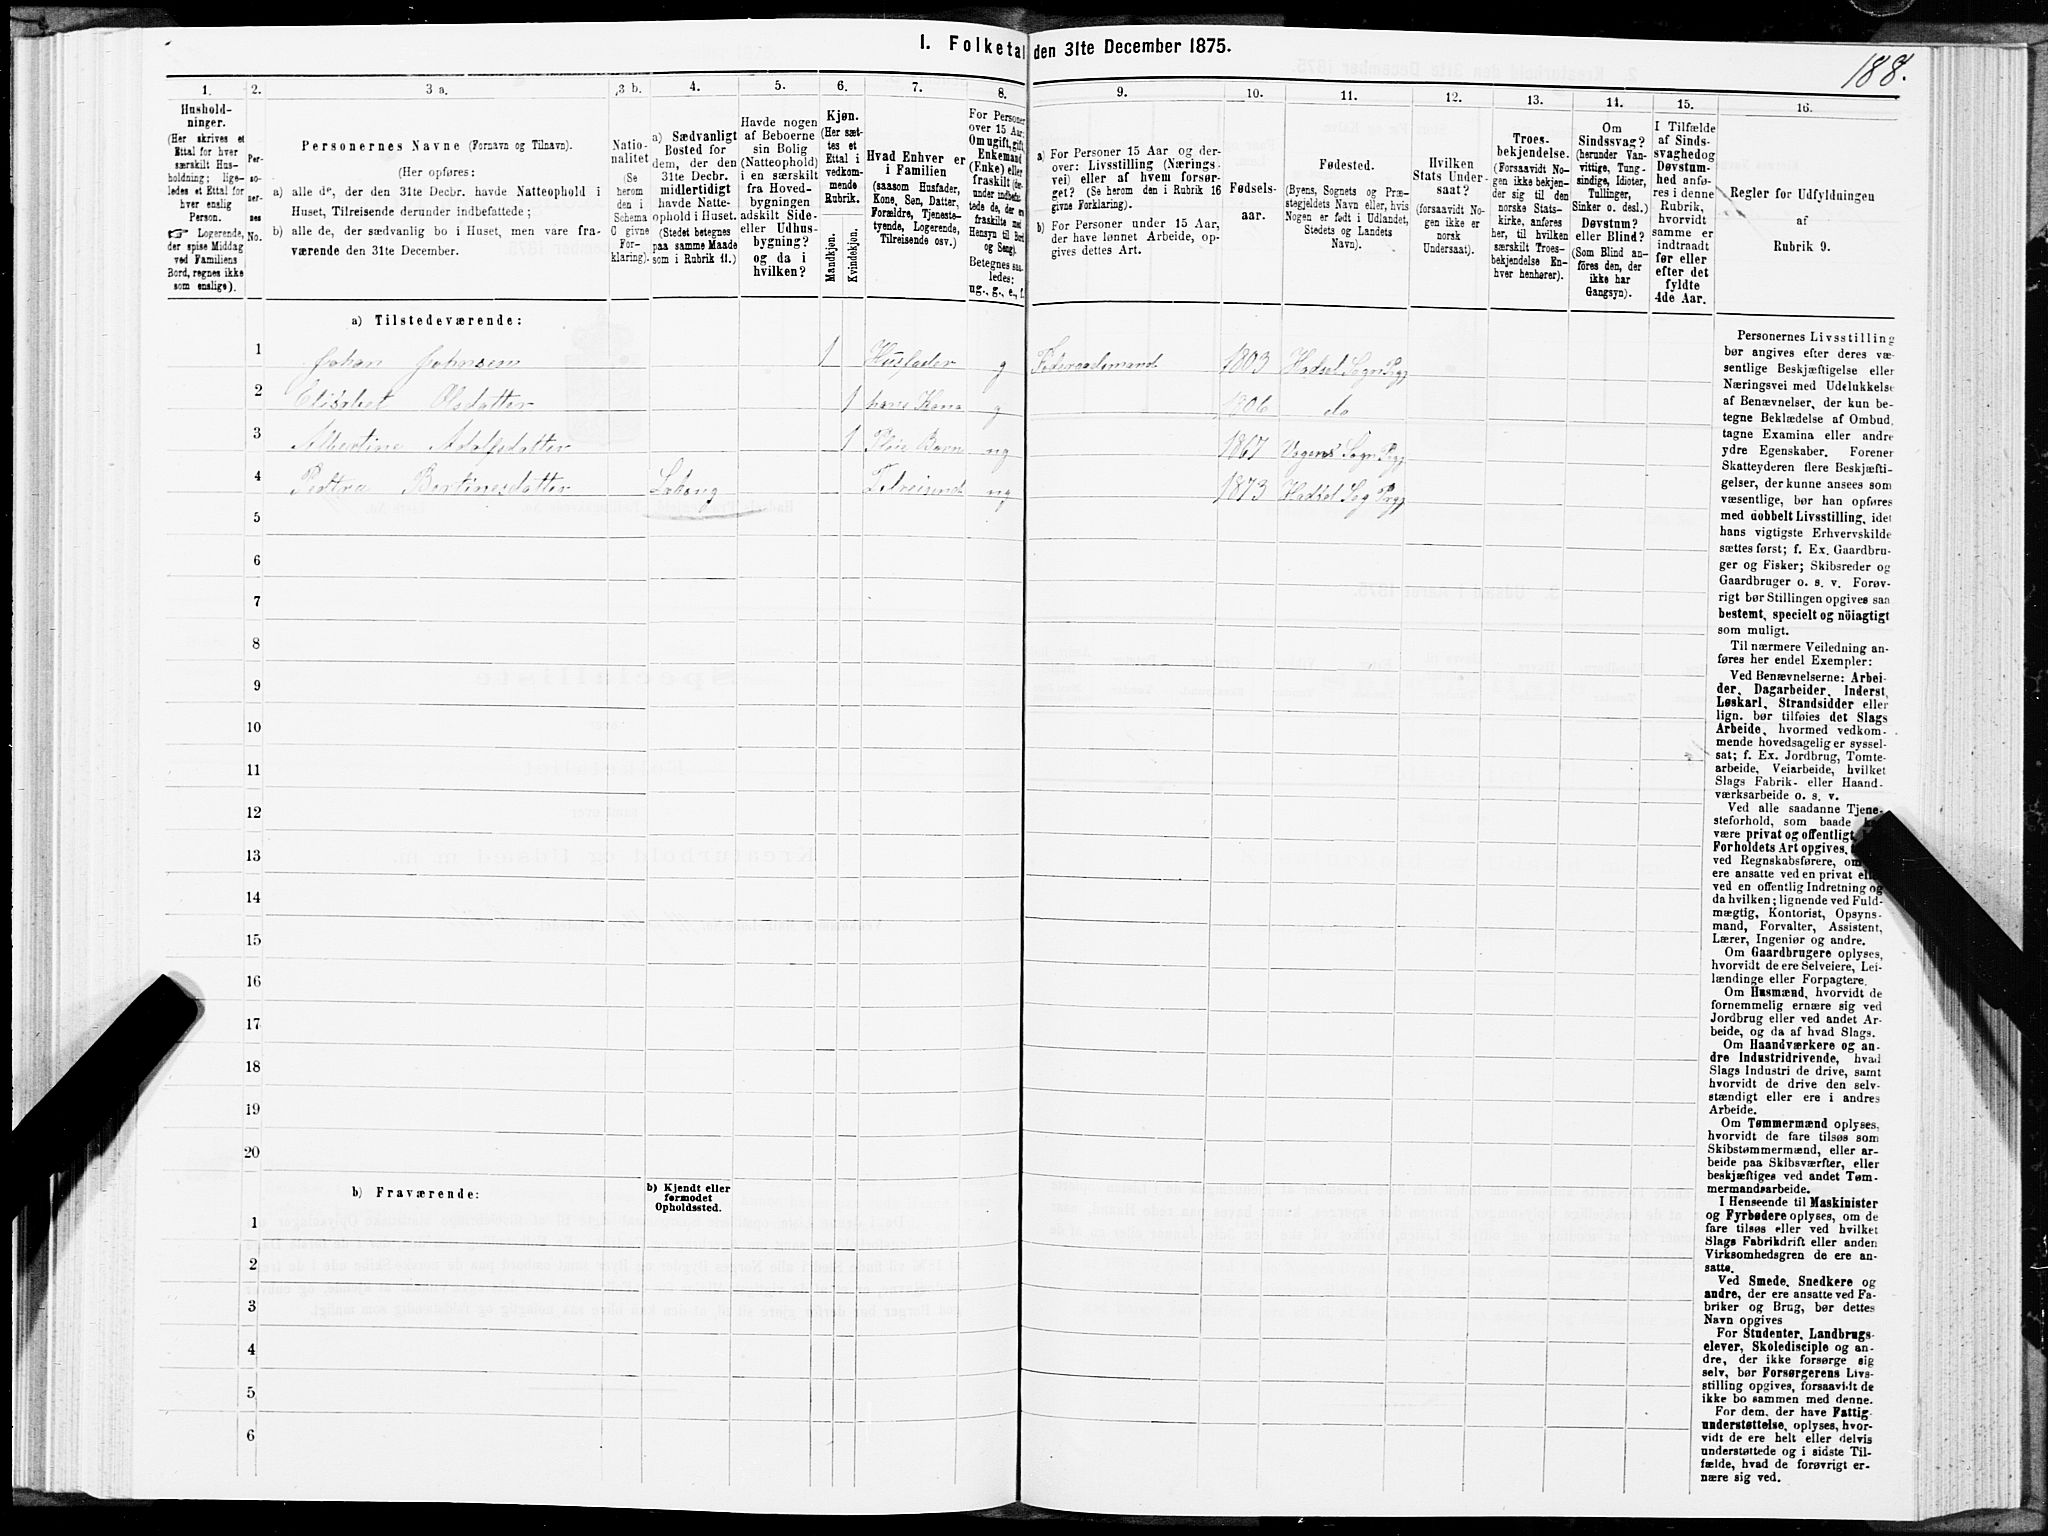 I. Folketal den 31te December 1875.
188.
1.
2.
3 a.
3 b.
4.
5.
6.
7.
8.
9.
10.
11.
12.
13.
14.
15.
16.
Hushold-
ninger.
(Her skrives et
Ettal for hver
særskilt Hus-
holdning; lige-
ledes et Ettal for
hver enslig
Person.
☞ Logerende,
der spise Middag
ved Familiens
Bord, regnes ikke
som enslige).
Per-
so-
ner-
nes
No.
Personernes Navne (Fornavn og Tilnavn).
(Her opføres:
a) alle de, der den 31te Decbr. havde Natteophold i
Huset, Tilreisende derunder indbefattede;
b) alle de, der sædvanlig bo i Huset, men vare fra-
værende den 31te December.
Natio-
nalitet
(Se
herom
den i
Schema
C givne
For-
klaring).
a) Sædvanligt
Bosted for
dem, der den
31te Decbr.
midlertidigt
havde Natte-
ophold i Huset.
(Stedet betegnes
paa samme Maade
som i Rubrik 11.)
Havde nogen
af Beboerne
sin Bolig
(Natteophold)
i en særskilt
fra Hoved-
bygningen
adskilt Side-
eller Udhus-
bygning?
og da i
hvilken?
Kjøn.
(Her sæt-
tes et
Ettal i
vedkom-
mende
Rubrik.
Mandkjøn.
Kvindekjøn.
Hvad Enhver er
i Familien
(saasom Husfader,
Kone, Søn, Datter,
Forældre, Tjeneste-
tyende, Logerende,
Tilreisende osv.)
For Personer
over 15 Aar:
Om ugift, gift,
Enkemand
(Enke) eller
fraskilt (der-
under indbefat-
tede de, der ere
fraskilte med
Hensyn til Bord
og Seng).
Betegnes saa-
ledes:
ug., g., e., f.
a) For Personer 15 Aar og der-
over: Livsstilling (Nærings-
vei) eller af hvem forsør-
get? (Se herom den i Rubrik 16
givne Forklaring).
b) For Personer under 15 Aar,
der have lønnet Arbeide, op-
gives dettes Art.
Fødsels-
aar.
Fødested.
(Byens, Sognets og Præ-
stegjeldets Navn eller, hvis
Nogen er født i Udlandet,
Stedets og Landets
Navn).
Hvilken
Stats Under-
saat?
(forsaavidt No-
gen ikke er
norsk
Undersaat).
Troes-
bekjendelse.
(Forsaavidt No-
gen ikke bekjen-
der sig til den
norske Stats-
kirke, anføres
her, til hvilken
særskilt Troes-
bekjendelse En-
hver henhører).
Om
Sindssvag?
(herunder Van-
vittige, Tung-
sindige, Idioter,
Tullinger,
Sinker o. desl.)
Døvstum?
eller Blind?
(Som Blind an-
føres den, der
ikke har
Gangsyn).
I Tilfælde
af Sinds-
svaghed og
Døvstum-
hed anfø-
res i denne
Rubrik,
hvorvidt
samme er
indtraadt
før eller
efter det
fyldte
4de Aar.
Regler for Udfyldningen
af
Rubrik 9.
a) Tilstedeværende:
1 Johan Johnsen 1 Husfader g Føderaadsmand 1803 Hadsel Sogn Pgj
2 Elisabet Olsdatter 1 hans Kone g 1806 do
3 Albertine Adolfsdatter 1 Pleie Barn ug 1867 Sogn Pgj
4 Pedtra Bertinesdatter Tilreisend ug 1873 Hadsel Sog Prgj
5
6
7
8
9
10
11
12
13
14
15
16
17
18
19
20
b) Fraværende:
b) Kjendt eller
formodet
Opholdssted.
1
2
3
4
5
6
Personernes Livsstilling
bør angives efter deres væ-
sentlige Beskjæftigelse eller
Næringsvei med Udelukkelse
af Benævnelser, der kun be-
tegne Beklædelse af Ombud,
tagne Examina eller andre
ydre Egenskaber. Forener
Skatteyderen flere Beskjæfti-
gelser, der kunne ansees som
væsentlige, bør han opføres
med dobbelt Livsstilling, idet
hans vigtigste Erhvervskilde
sættes først; f. Ex. Gaardbru-
ger og Fisker; Skibsreder og
Gaardbruger o. s. v. Forøv-
rigt bør Stillingen opgives saa
bestemt, specielt og nöiagtigt
som muligt.
Til nærmere Veiledning an-
føres her endel Exempler:
Ved Benævnelserne: Arbei-
der, Dagarbeider, Inderst,
Løskarl, Strandsidder eller
lign. bør tilføies det Slags
Arbeide, hvormed vedkom-
mende hovedsagelig er syssel-
sat; f. Ex. Jordbrug, Tomte-
arbeide, Veiarbeide, hvilket
Slags Fabrik- eller Haand-
værksarbeide o. s. v.
Ved alle saadanne Tjene-
steforhold, som baade
være privat og offentligt,
Forholdets Art opgives,
ved Regnskabsførere, om
ere ansatte ved en privat
ved en offentlig Indretning og
da hvilken; lignende ved Fuld-
mægtig, Kontorist, Opsyns-
mand, Forvalter, Assistent,
Lærer, Ingeniør og andre.
Om Gaardbrugere oplyses,
hvorvidt de ere Selveiere, Lei-
lændinge eller Forpagtere.
Om Husmænd, hvorvidt de
fornemmelig ernære sig ved
Jordbrug eller ved andet Ar-
beide, og da af hvad Slags.
Om Haandværkere og an-
dre Industridrivende, hvad
Slags Industri de drive, samt
hvorvidt de drive den selv-
stændigt eller ere i andres
Arbeide.
Om Tømmermænd oplyses,
hvorvidt de fare tilsøs som
Skibstømmermænd, eller ar-
beide paa Skibsværfter, eller
beskjæftiges ved andet Tøm-
mermandsarbeide.
I Henseende til Maskinister
og Fyrbødere oplyses, om de
fare tilsøs eller ved hvilket
Slags Fabrikdrift eller anden
Virksomhedsgren de ere an-
satte.
Ved Smede, Snedkere og
andre, der ere ansatte ved Fa-
briker og Brug, bør dettes
Navn opgives
For Studenter, Landbrugs-
elever, Skoledisciple og an-
dre, der ikke forsørge sig
selv, bør Forsørgerens Livs-
stilling opgives, forsaavidt de
ikke bo sammen med denne.
For dem, der have Fattig-
understøttelse, oplyses, hvor-
vidt de ere helt eller delvis
understøttede og i sidste Til-
fælde, hvad de forøvrigt er-
nære sig ved.